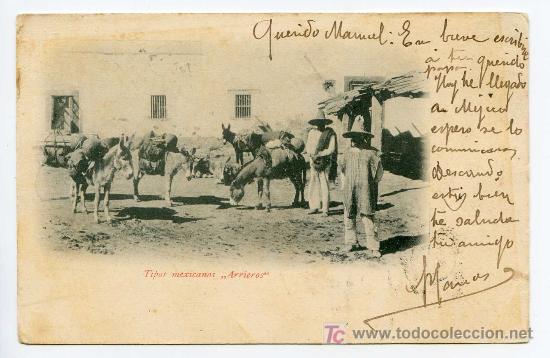 Querido Manuel: En breve escribiré
á tu querido
papa.
Hoy he llegado
an Mejico
espero se lo
comunicaras.
Deseando
estés bien
te saluda
tu amigo
Tipos mexicanos „Arrieros“
www.todocoleccion.net